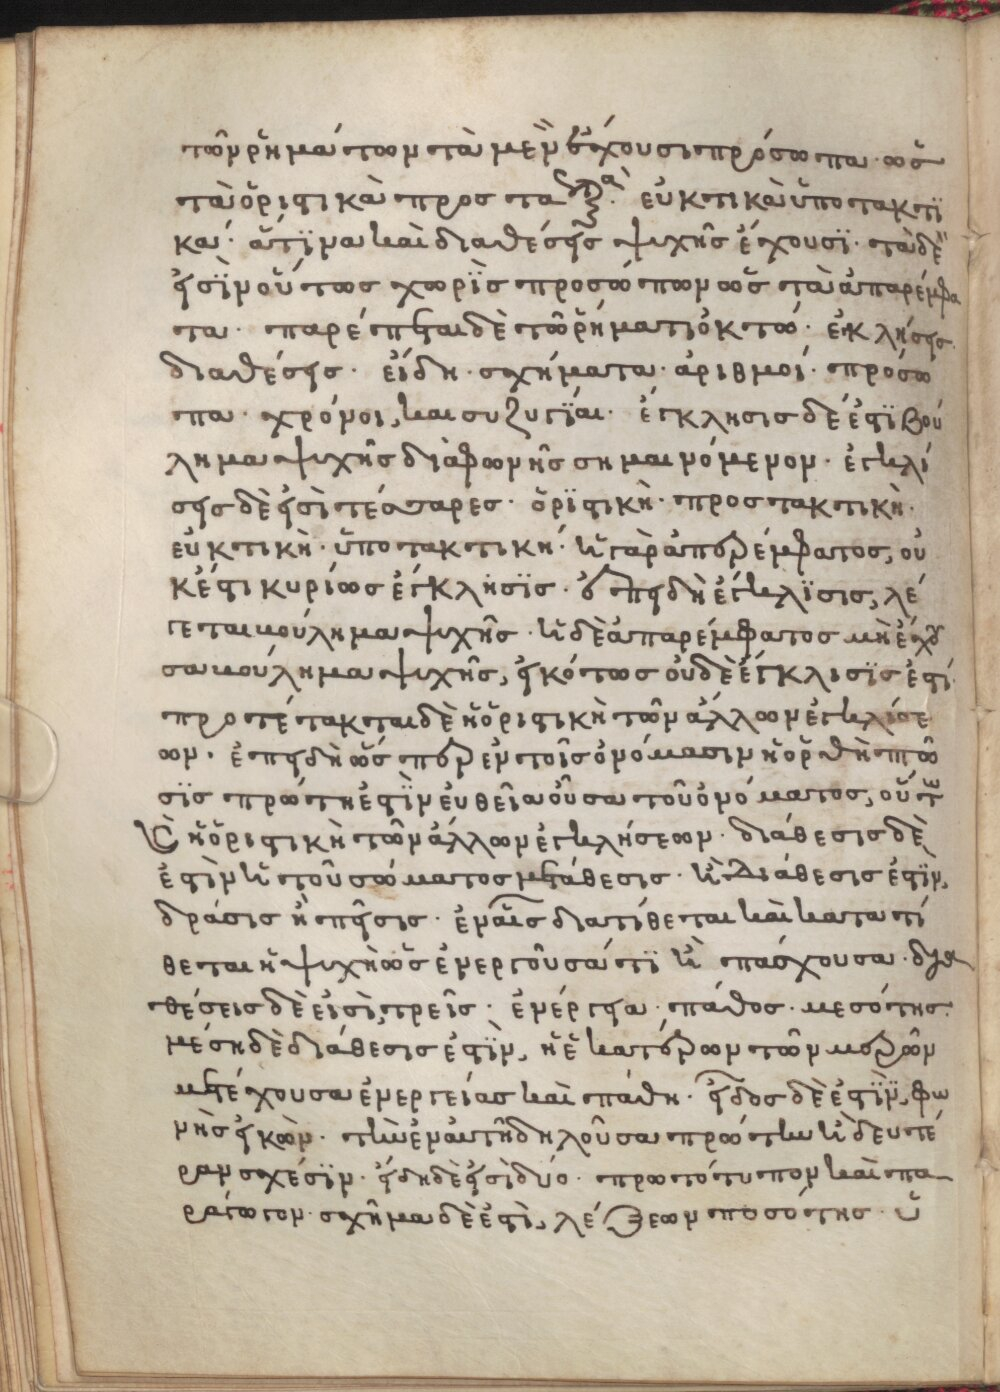 τῶν ῥημάτων τὰ μὲν ἔχουσι πρόσωπα· ὡς
τὰ ὁριστικὰ προστα εὐκτικὰ ὑποτακτι
κά· ἅτινα καὶ διαθέσεις ψυχῆς ἔχουσι· τὰ δέ
εἰσὶν οὕτως χωρὶς προσώπων ὡς τὰ ἀπαρέμφα
τα· παρέπεται δὲ τῶ ῥήματι ὀκτώ· ἐκλήσεις
διαθέσεις· εἴδη· σχήματα· ἀριθμοί· πρόσω
πα· χρόνοι, καὶ συζυγίαι· ἔγκλησις δέ ἐστι βού
λημα ψυχῆς διὰ φωνῆς σημαινόμενον· ἐγκλί
σεις δὲ εἰσὶ τέσσαρες· ὁριστικὴ· προστακτικὴ·
εὐκτικὴ· ὑποτακτική· ἡ γὰρ ἀπαρέμφατος, οὐ
κ ἔστι κυρίως ἔγκλησις· ἐπειδὴ ἔγκλισις, λέ
γεται βούλημα ψυχῆς· ἡ δὲ ἀπαρέμφατος μὴ ἔχου
σα βούλημα ψυχῆς, εἰκότως οὐδὲ ἔγκλισις ἐστί·
προτέτακται δὲ ἡ ὁριστικὴ τῶν ἄλλων ἐγκλίσε
ων· ἐπειδὴ ὥσπερ ἐν τοῖς ὀνόμασιν ἡ ὀρθὴ πτῶ
σις πρώτη ἐστὶν εὐθεῖα οὖσα τοῦ ὀνόματος, οὕτω
καὶ ἡ ὁριστικὴ τῶν ἄλλων ἐγκλήσεων· διάθεσις δὲ
ἐστὶν ἡ τοῦ σώματος μετάθεσις· ἢ διάθεσις ἐστὶν,
δράσις ἢ πεῖσις· ἐν αἷς διατίθεται καὶ κατατί
θεται ἡ ψυχὴ ὡς ἐνεργοῦσά τι ἢ πάσχουσα· δια
θέσεις δὲ εἰσὶ, τρεῖς· ἐνέργεια· πάθος· μεσότης·
μέση δὲ διάθεσις ἐστὶν, ἡ ἑκατέρων τῶν μερῶν
μετέχουσα ἐνεργείας καὶ πάθη· εἶδος δὲ ἐστὶν, φω
νῆς εἰκὼν· τὴν ἐν αὐτῆ δηλοῦσα πρώτην ἢ δευτέ
ραν σχέσιν· εἴδη δὲ εἰσὶ δύο· πρωτότυπον καὶ πα
ράγωγον· σχῆμα δὲ ἐστὶ, λέξεων ποσότης· ὑ